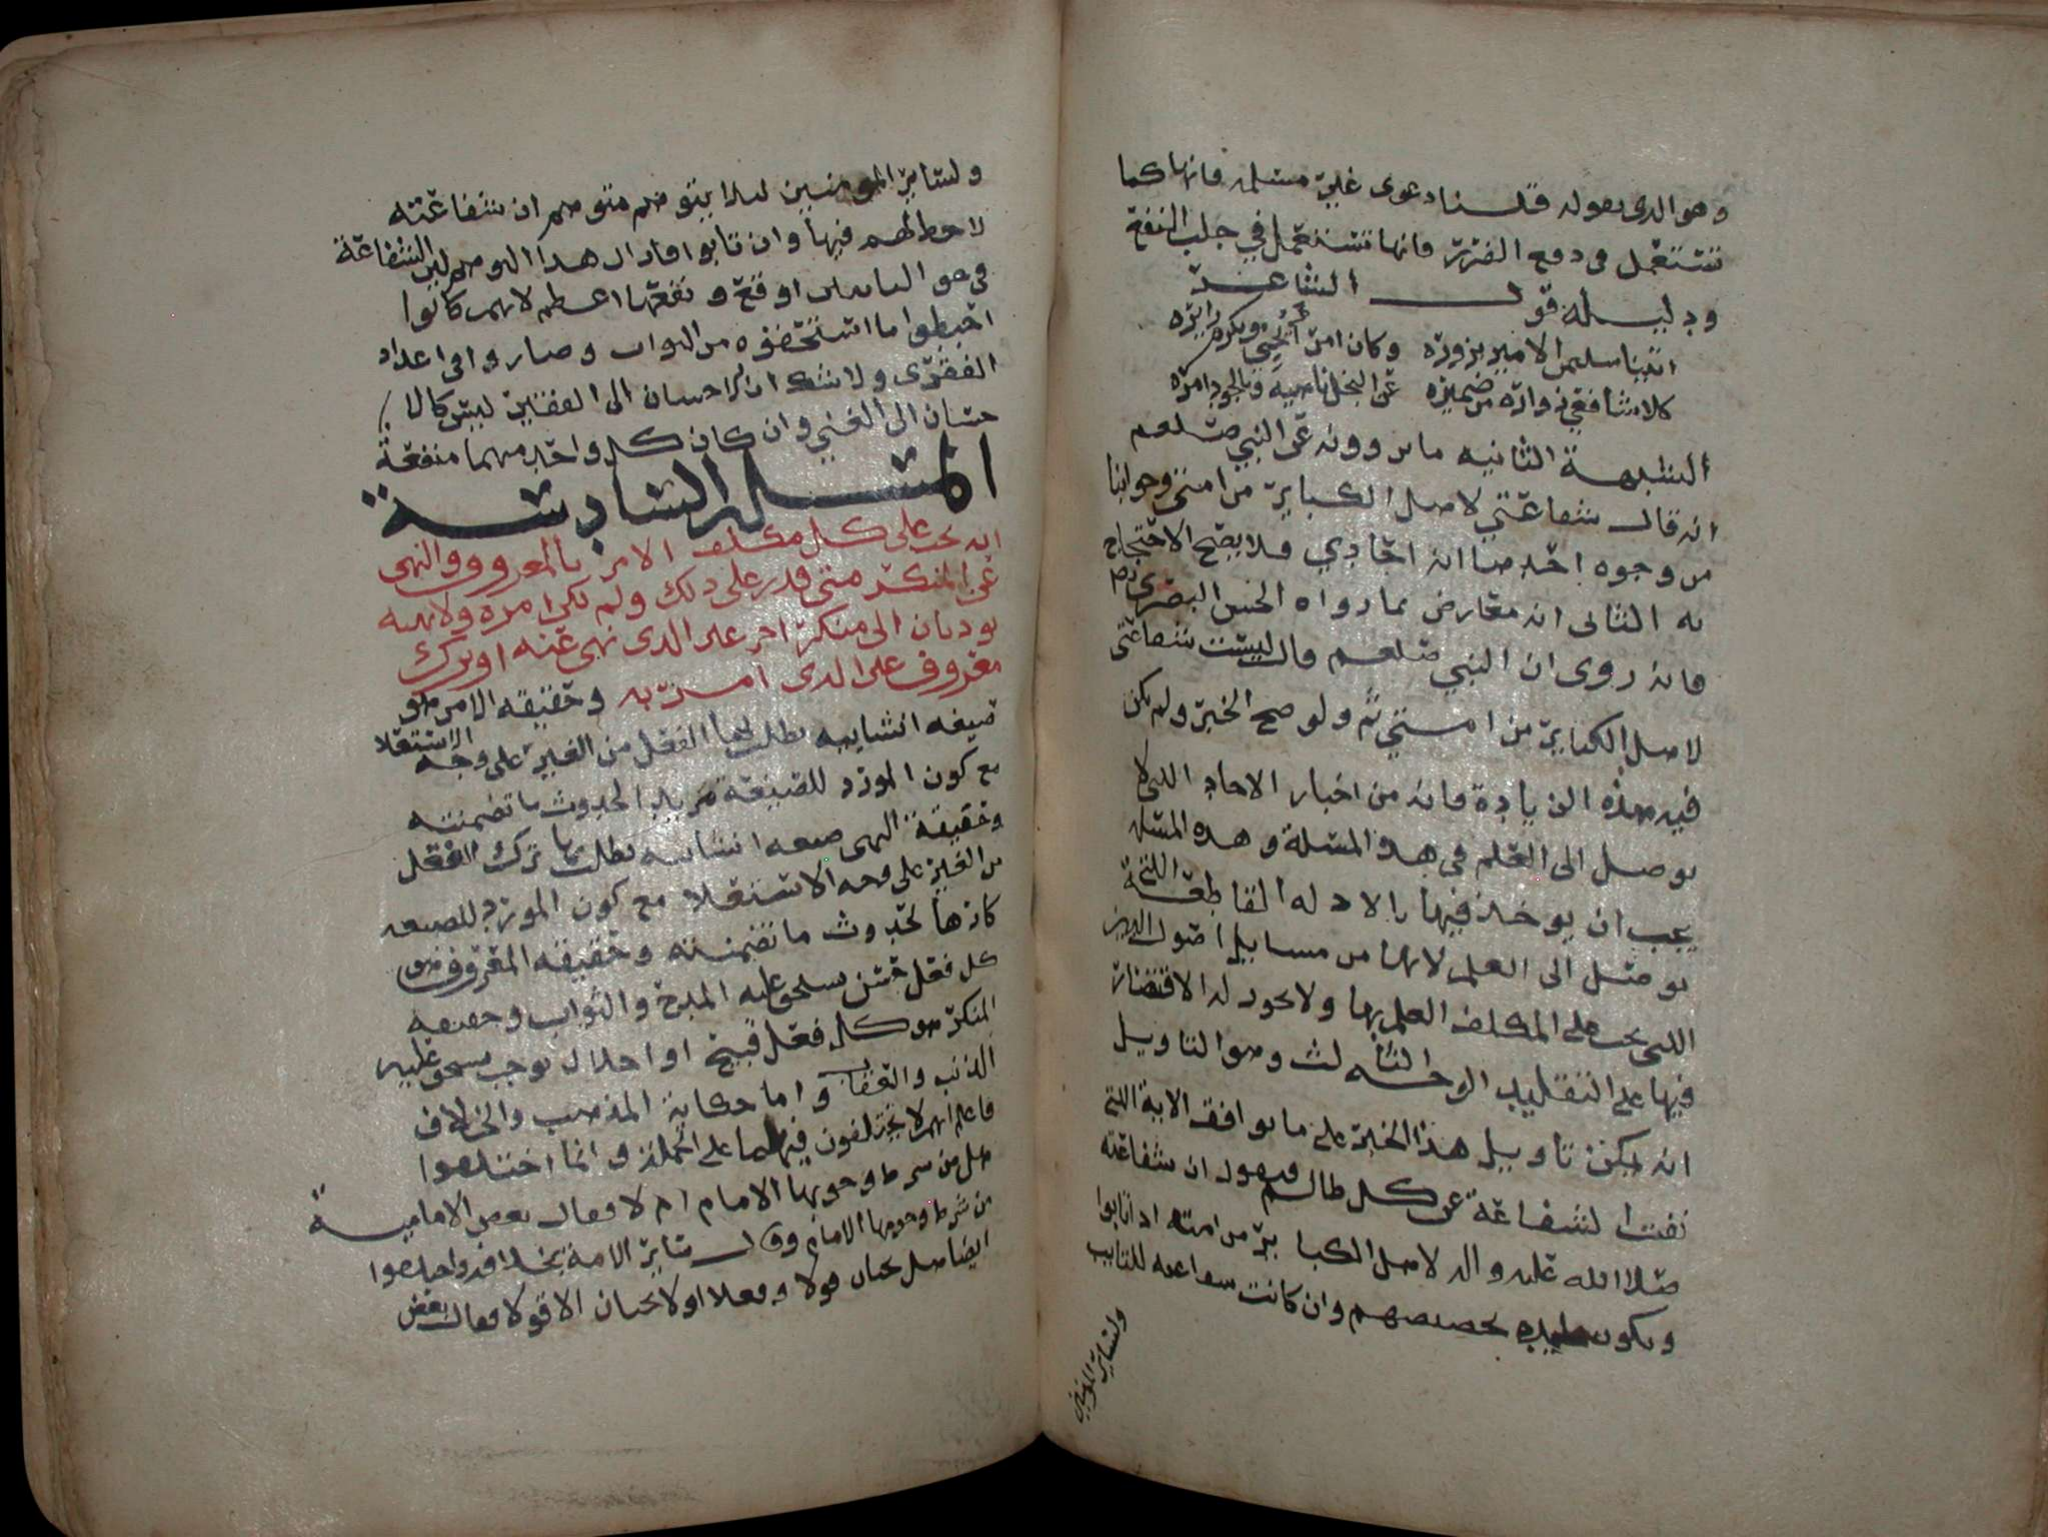 وهو الدى بعوله قلسنا دعوى غير مسلمه فانها كما
تستعمل فى دفع الضرر فانها تستعمل في جلب النفع
ودليله قول الشاعر
اتينا سليمن الامير نزوره وكان امرءا يحبى ويكرم زايره
كلا شافعي زواره من ضميره عن البخل ناهيه وبالجود امره
الشبهة الثانيه ما يروونه عن النبي صلعم
انه قال شفاعتي لاهل الكباير من امتي وجوابنا
من وجوه احدها انه احادي فلا يصح الاحتجاج
به الثانى انه معارض بما رواه الحسن البصرى
فانه روى ان النبي صلعم قال ليست شفاعتى
لاهل الكباير من امتي ثم ولو صح الخبر ولم يكن
فيه هذه الزيادة فانه من اخبار الاحاد التى لا
يوصل الى العلم فى هذه المسلة وهده المسله
يجب ان يوخذ فيها بالادله القاطعة التي
يوصل الى العلم لانها من مسايل اصول الدين
التى يجب على المكلف العلم بها ولا يجوز له الاقتصار
فيها على التقليد الوجه الثالث وهو التاويل
انه يمكن تاويل هذا الخبر على ما يوافق الاية التى
نفت الشفاعة عن كل ظالم فيقول ان شفاعته
صلا الله عليه واله لاهل الكباير من امته اذا تابوا
ويكون بخصيصهم وان كانت شفاعته للتايب
ولساير المومنين
ولساير المومنين ليلا يتوهم متوهم ان شفاعته
لاحظ لهم فيها وان تابوا افازال هدا الوهم لين الشفاعة
فى حق التايبين اوقع ونفعها اعظم لانهم كانوا
احبطوا ما استحقوه من الثواب وصاروا فى اعداد
الفقرى ولا شك ان الاحسان الى الفقير ليس كالا
حسان الى الغني وان كان كل واحد منهما منفعة
المسله السادسة
انه يجب على كل مكلف الامر بالمعروف والنهى
عن المنكر متى قدر على ذلك ولم يكن امره ولانهيه
يوديان الى منكر اخر على الدى نهى عنه او ترك
معروف على الدى امر به وحقيقه الامر هو
صيغه انشاييه يطلب بها الفعل من الغير على وجه الاستعلا
مع كون المورد للصيغة مريدا لحدوث ما تضمنته
وحقيقة النهى صيغه انشاييه يطلب بها ترك الفعل
من الغير على وجه الاستعلا مع كون المورد للصيغه
كارها لحدوث ما تضمنته وحقيقه المعروف هو
كل فعل حسن يستحق عليه المدح والثواب وحقيقه
المنكر هو كل فعل قبيح او اخلال بوجب يستحق عليه
الذنب والعقاب واما حكاية المذهب والخلاف
فاعلم انهم لا يختلفون فيهما على الجملة وانما اختلفوا
هل من شرط وجوبها الامام ام لا فقال بعض الامامية
من شرط وجوبها الامام وقال ساير الامة بخلافه واختلفوا
ايضا هل يجبان قولا وفعلا او لا يجبان الا قولا فقال بعض